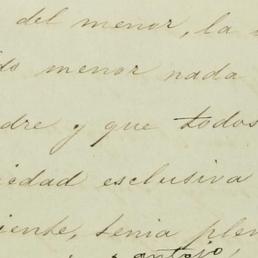 del menor, la
do menor nada
dre y que todos
iedad exclusiva
iente, tenia plen
antojo,